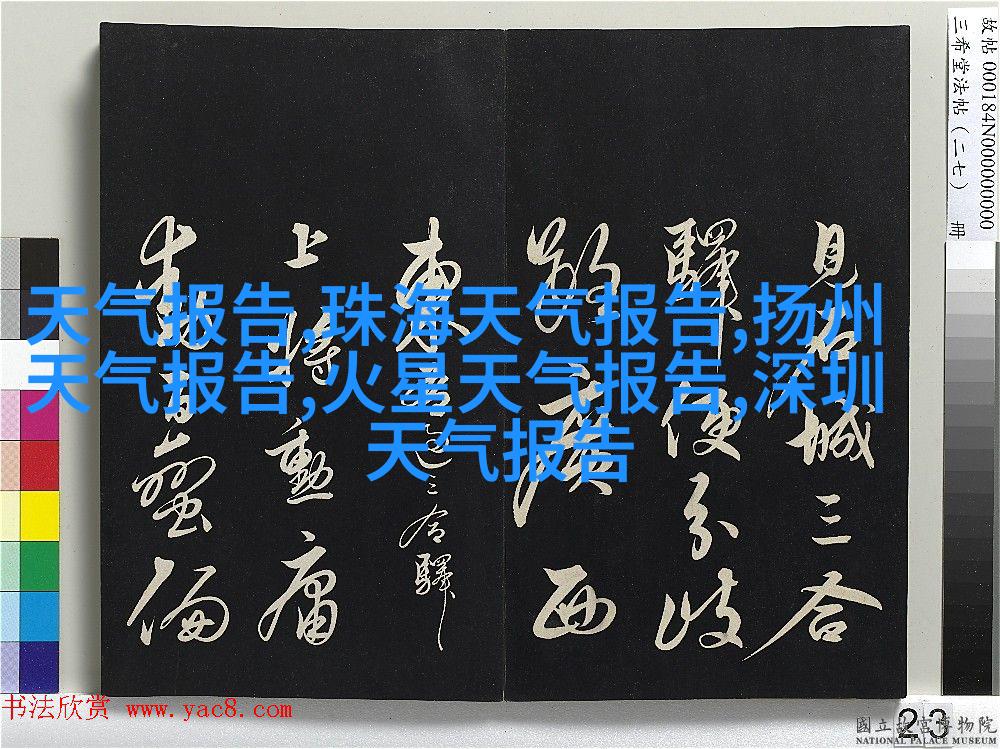 故帖 000184N000000000
三希堂法帖(二七) 冊
見名城三合
驛便分歧
西
東三合驛
上將勳庸
天气报告,珠海天气报告,扬州
天气报告,火星天气报告,深圳
天气报告
书法欣赏 www.yac8.com
23
國立故宮博物院
NATIONAL PALACE MUSEUM